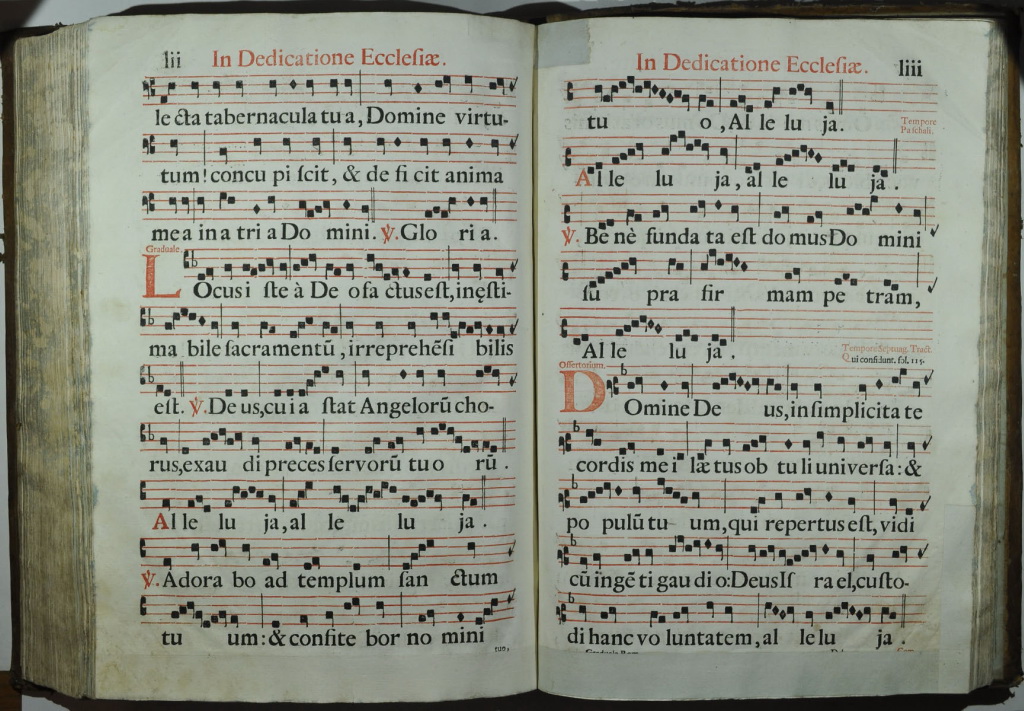 lii In Dedicatione Eccleſiæ.
le cta tabernacula tu a, Domine virtu-
tum! concu pi ſcit, & de fi cit anima
me a in a tri a Do mini. ℣. Glo ri a.
Graduale.
LOcus i ſte à De o fa ctus eſt, inęſti-
ma bile ſacramentū, irreprehēſi bilis
eſt. ℣. De us, cu i a ſtat Angelorū cho-
rus, exau di preces ſervorū tu o rū.
Al le lu ja, al le lu ja.
℣. Adora bo ad templum ſan ctum
tu um: & confite bor no mini
tuo,
In Dedicatione Eccleſiæ. liii
tu o, Al le lu ja.
Tempore
Paſchali.
Al le lu ja, al le lu ja.
℣. Be nè funda ta eſt do mus Do mini
ſu pra fir mam pe tram,
Al le lu ja.
Tempore Septuag. Tract.
Qui confidunt. fol. 115.
Offertorium.
DOmine De us, in ſimplicita te
cordis me i læ tus ob tu li univerſa: &
po pulū tu um, qui repertus eſt, vidi
cū ingē ti gau di o: Deus Iſ ra el, cuſto-
di hanc vo luntatem, al le lu ja.